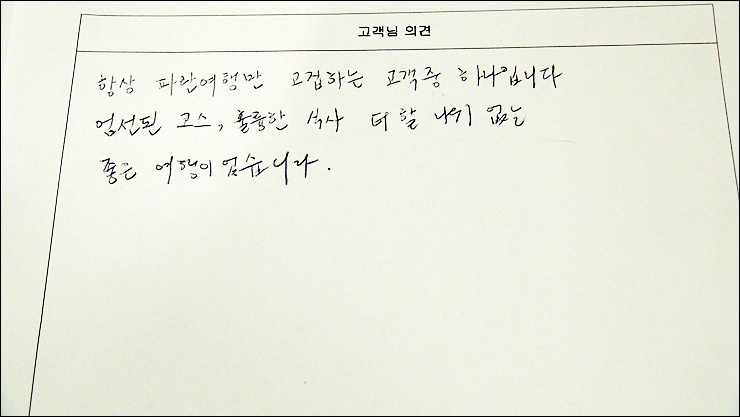 고객님 의견
항상 파란여행만 고집하는 고객중 하나입니다
엄선된 코스, 훌륭한 식사 더 할 나위 없는
좋은 여행이었습니다.